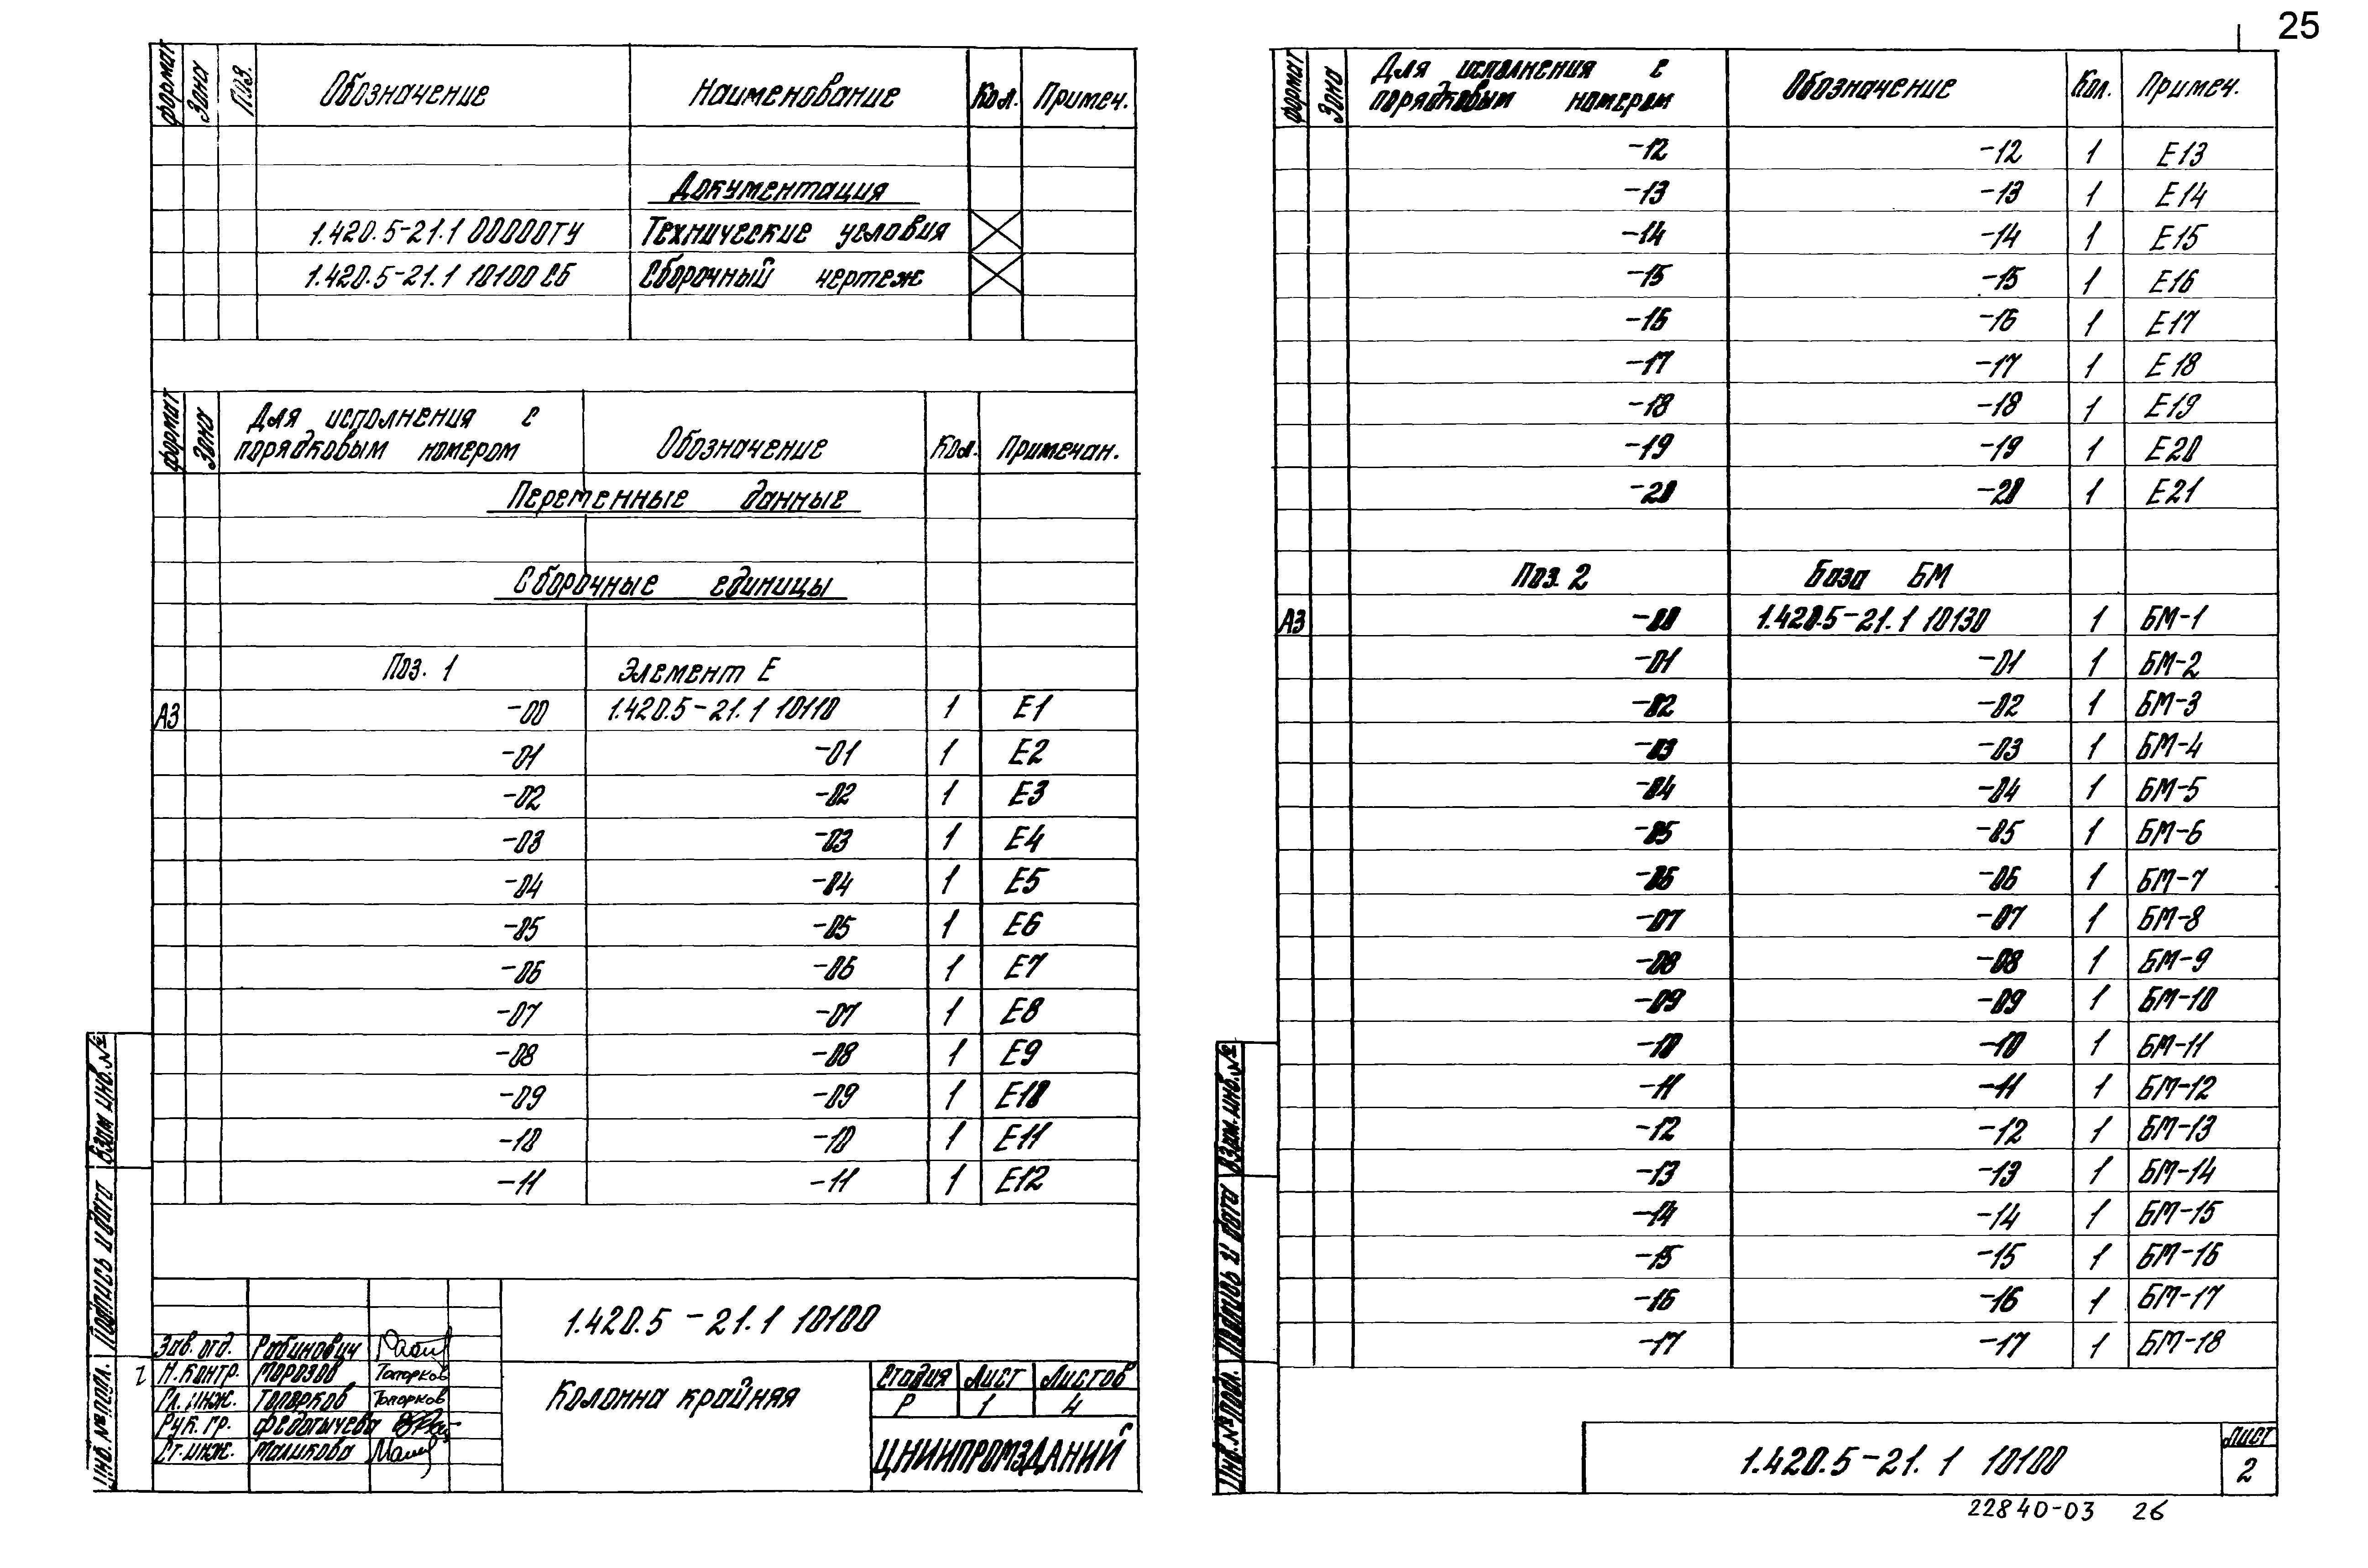 25
формат Зона Поз. Обозначение Наименование Кол. Примеч.
Документация
1.420.5-21.1 00000ТУ Технические условия
1.420.5-21.1 10100 СБ Сборочный чертеж
формат Зона Для исполнения с порядковым номером Обозначение Кол. Примечан.
Переменные данные
Сборочные единицы
Поз. 1 Элемент Е
А3 -00 1.420.5-21.1 10110 1 Е1
-01 -01 1 Е2
-02 -02 1 Е3
-03 -03 1 Е4
-04 -04 1 Е5
-05 -05 1 Е6
-06 -06 1 Е7
-07 -07 1 Е8
-08 -08 1 Е9
-09 -09 1 Е10
-10 -10 1 Е11
-11 -11 1 Е12
Инв. № подл. Подпись и дата Взам инв. №
1.420.5-21.1 10100
Зав. отд. Рабинович
Н. контр. Морозов Топорков
Гл. инж. Топорков Топорков
Рук. гр. Федотычева
Ст. инж. Маликова
Колонна крайняя
Стадия Лист Листов
Р 1 4
ЦНИИПРОМЗДАНИЙ
формат Зона Для исполнения с порядковым номером Обозначение Кол. Примеч.
-12 -12 1 Е13
-13 -13 1 Е14
-14 -14 1 Е15
-15 -15 1 Е16
-16 -16 1 Е17
-17 -17 1 Е18
-18 -18 1 Е19
-19 -19 1 Е20
-20 -20 1 Е21
Поз. 2 База БМ
А3 -00 1.420.5-21.1 10130 1 БМ-1
-01 -01 1 БМ-2
-02 -02 1 БМ-3
-03 -03 1 БМ-4
-04 -04 1 БМ-5
-05 -05 1 БМ-6
-06 -06 1 БМ-7
-07 -07 1 БМ-8
-08 -08 1 БМ-9
-09 -09 1 БМ-10
-10 -10 1 БМ-11
-11 -11 1 БМ-12
-12 -12 1 БМ-13
-13 -13 1 БМ-14
-14 -14 1 БМ-15
-15 -15 1 БМ-16
-16 -16 1 БМ-17
-17 -17 1 БМ-18
Инв. № подл. Подпись и дата Взам. инв. №
1.420.5-21.1 10100
Лист
2
22840-03 26